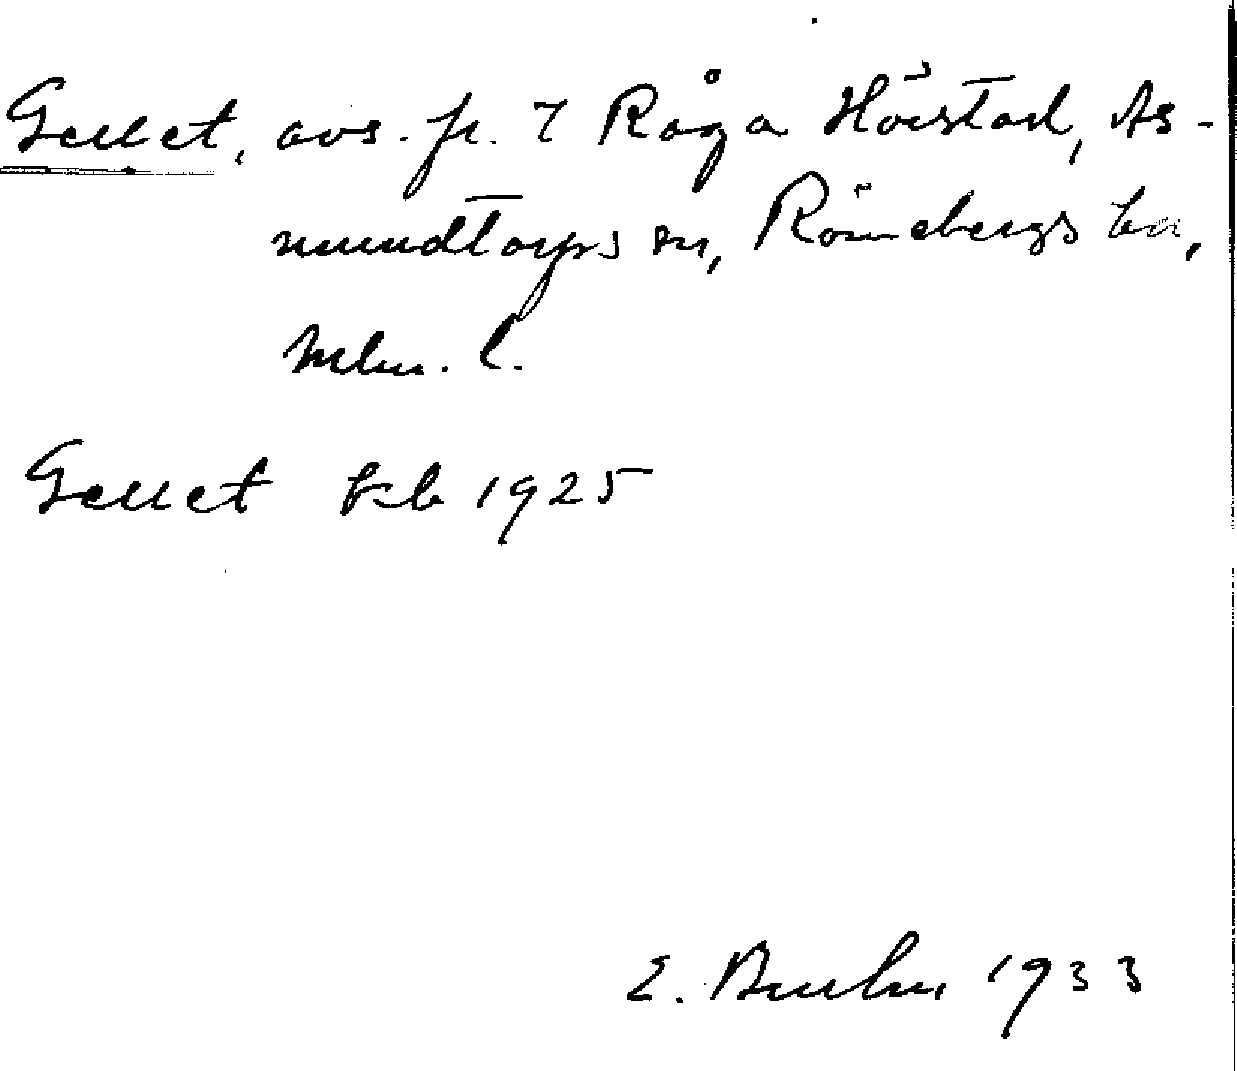 Gellet, avs. fr. 7 Råga Hörstad, As-
mundtorps sn, Rönnebergs hd,
Mlm. l.
Gellet 1925
E. 1933